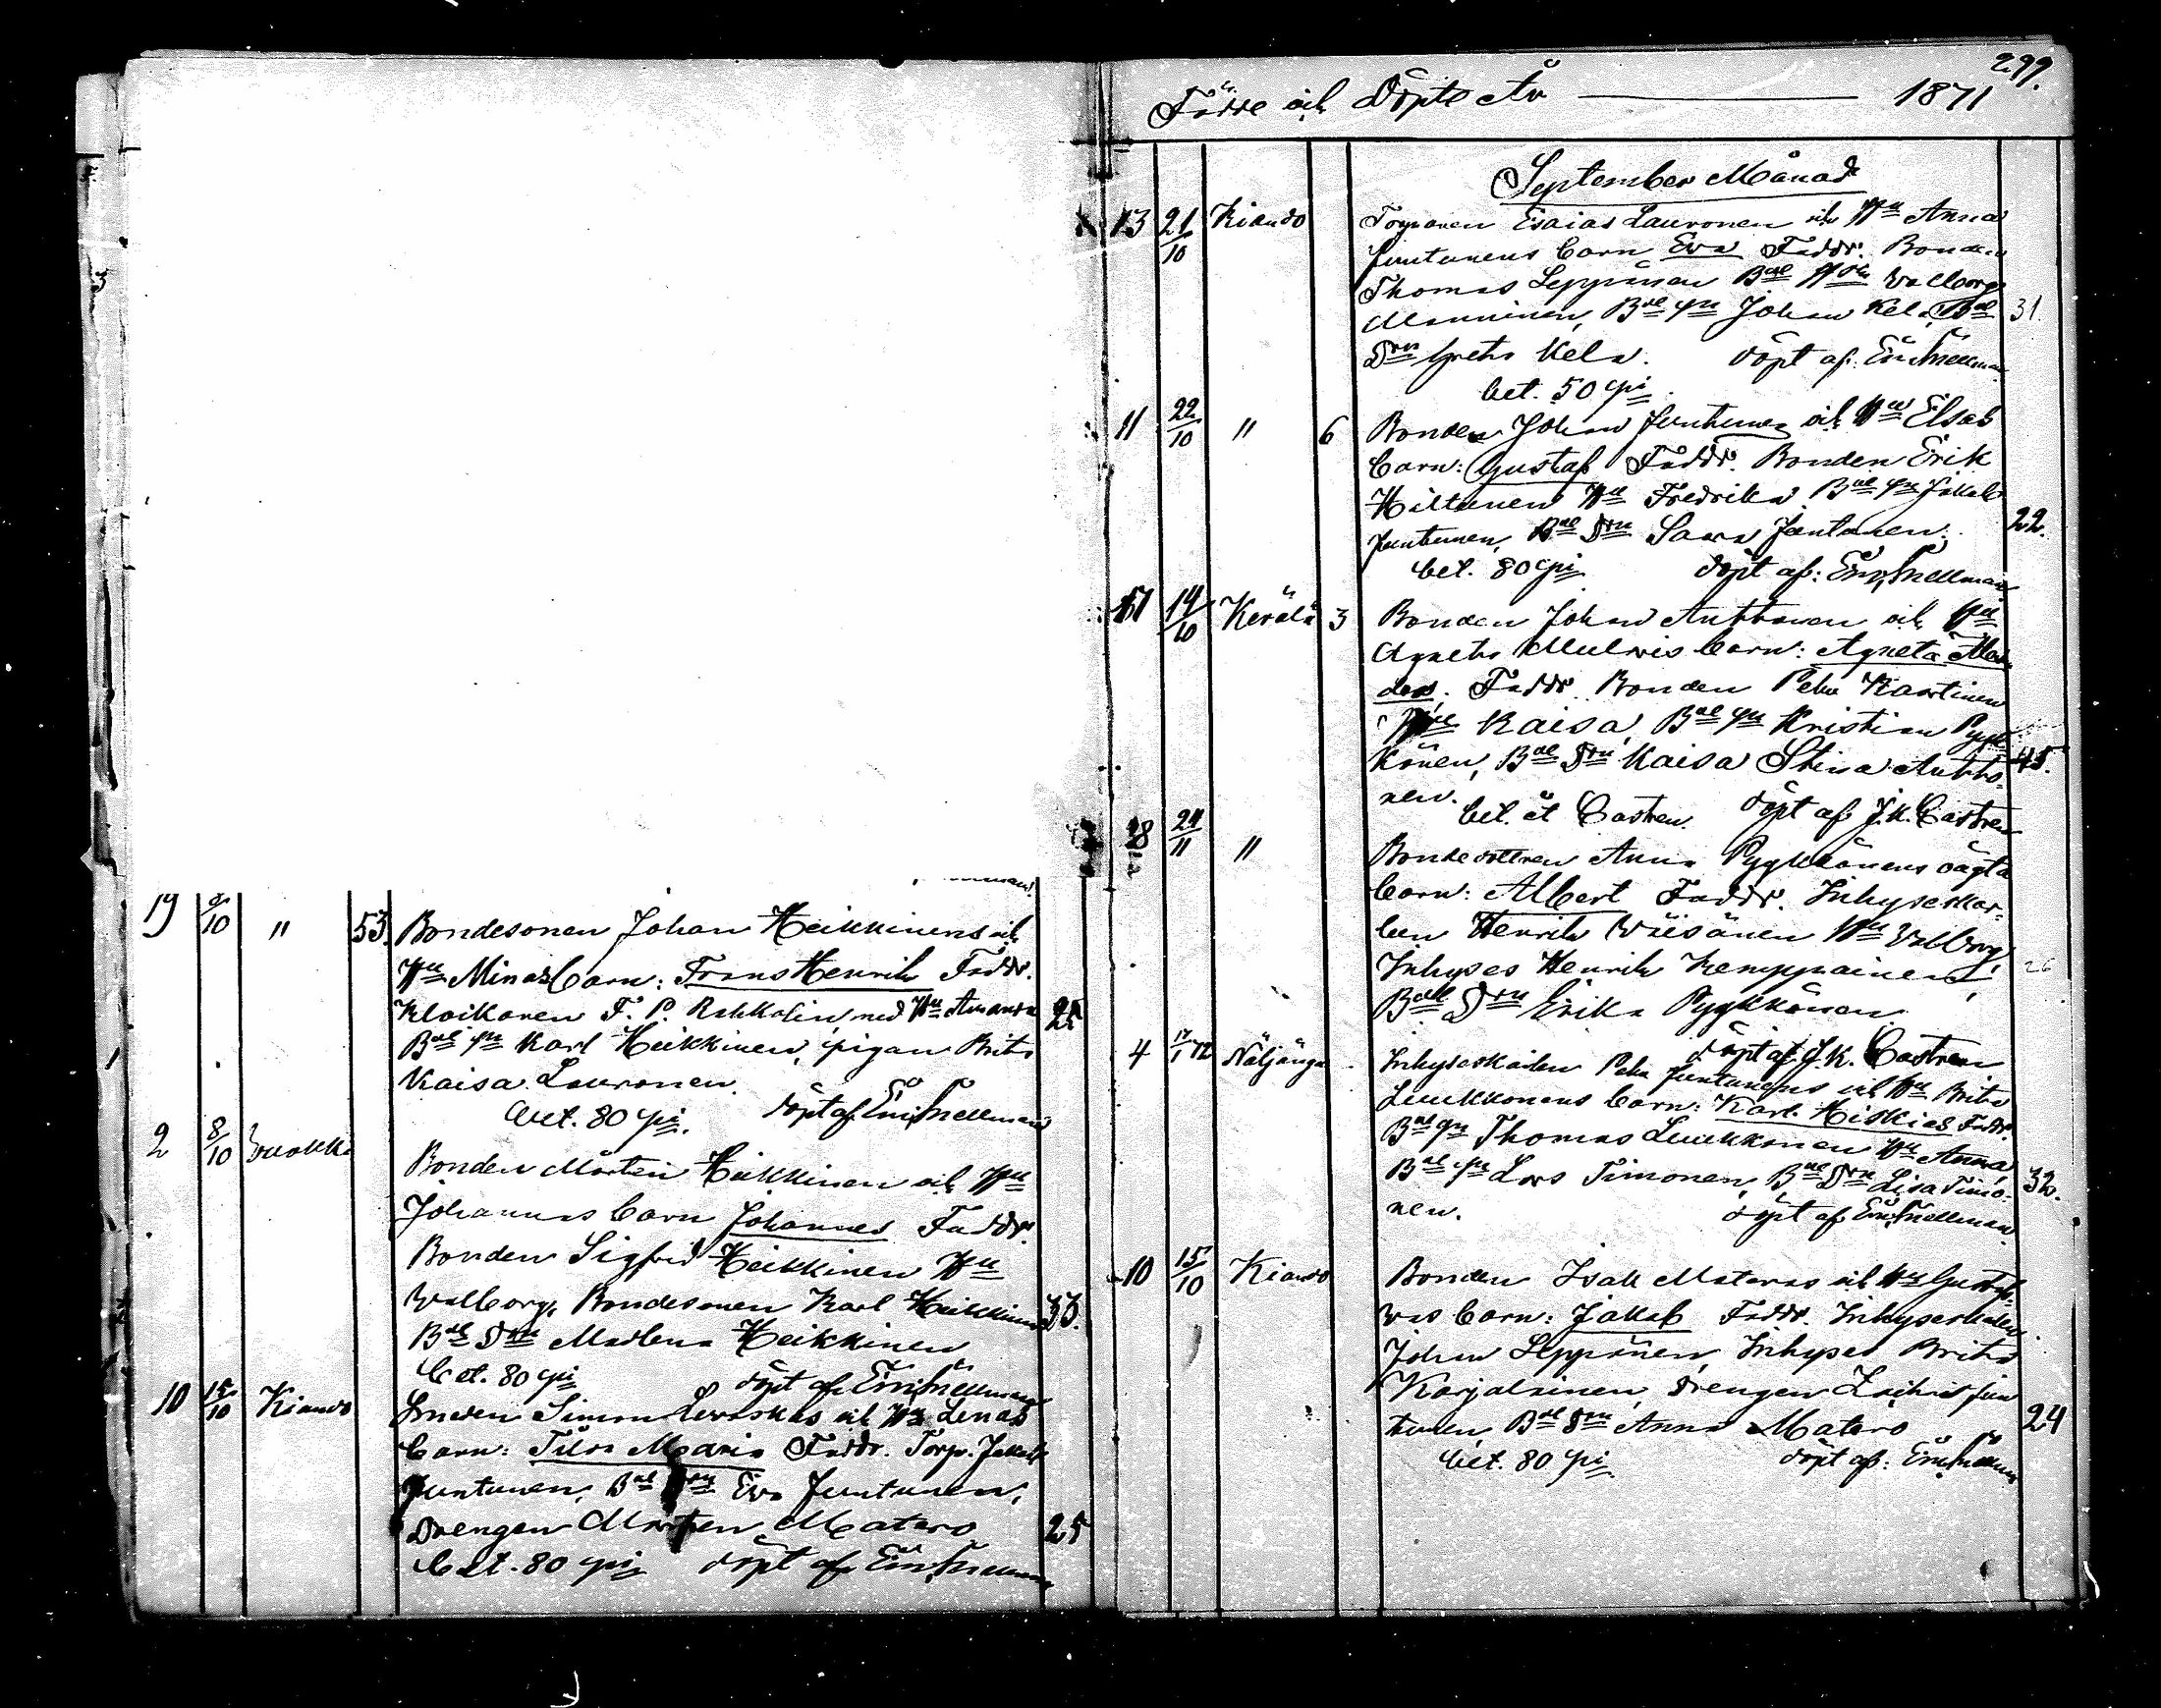 19 9/10 " 53. Bondesonen Johan Heikkinens och
Hu Minas barn: Frans Henrik Faddr.
Klockaren F. P. Rahkolin, med Hu Amanda 25
Bde Sn Karl Heikkinen, pigan Brita
Kaisa Lauronen.
bet. 80 pi. döpt af Em. Snellman
2 8/10 Vuokki Bonden Mårten Heikkinen och Hu
Johannas barn Johannes Faddr.
Bonden Sigfrid Heikkinen Hu
Walborg, Bondesonen Karl Heikkinen 33.
Bde Drn Madlena Heikkinen
bet. 80 pi döpt af Em. Snellman
10 15/10 Kiando Smeden Simon och Hu Lenas
barn: Maria Faddr. Torp. Jakob
Juntunen, Bde Drn Eva Juntunen,
Drengen Mårten Matero 25
bet. 80 pi döpt af Em. Snellman
299.
Födde och Döpte År 1871
September Månad
13 21/10 Kiando Torparen Esaias Lauronen och Hu Anna
Juntunens barn Eva Faddr. Bonden
Thomas Leppänen Bde Walborg
Manninen, Bde Sn Johan Kela, Bde 31.
Drn Greta Kela. döpt af: Em. Snellman
bet. 50 pi
11 22/10 " 6 Bonden Johan Juntunen och Hu Elsas
barn: Gustaf Faddr. Bonden Erik
Hiltunen Hu Fredrika, Bde Sn Jakob
Juntunen, Bde Drn Sara Juntunen. 22.
bet. 80 pi döpt af: Em. Snellman
14/10 Kerälä 3 Bonden Johan Anttonen och Hu
Agneta Mularis barn: Agneta
Faddr. Bonden Pehr Karttinen
Hu Kaisa, Bde Sn Kristian Pyyk-
könen, Bde Drn Kaisa Stina Antto- 45.
nen.
bet. åt Castren. döpt af J.K. Castren
28 24/11 " Bondedottren Anna Pyykkönens oägta
barn: Albert Faddr. Inhyseskar-
len Henrik Wäisänen Hu Valborg,
Inhyses Henrik Kemppainen, 26
Bde Drn Erika Pyykkönen
döpt af J.K. Castren
4 17/1 72 Näljänge Inhyseskarlen Pehr Juntunens och Hu Brita
Luukkonens barn: Karl Hiskias Faddr.
Bde Sn Thomas Luukkonen Hu Anna,
Bde Sn Lars Timonen, Bde Drn Lisa Timo- 32.
nen. döpt af Em. Snellman
10 15/10 Kiando Bonden Isak Materos och Hu Gusta-
vas barn: Jakob Faddr. Inhyseskarlen
Johan Leppänen, Inhyses Brita
Karjalainen, Drengen Zachris Jun
tunen, Bde Drn Anna Matero 24
bet. 80 pi döpt af: Em. Snellman